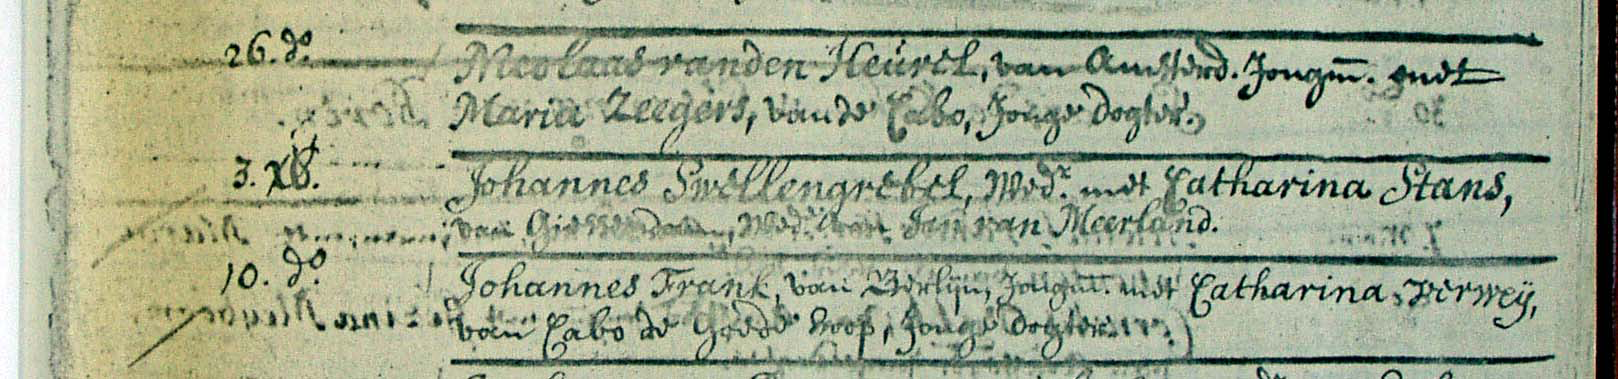 26. do. Nicolaas van den Heuvel, van Amsterd. Jongm. met
Maria Zeegers, van de Cabo, Jonge dogter.
3. Xb. Johannes Swellengrebel, Wedr. met Catharina Stans,
van Giessendam, Wed. van Jan van Meerland.
10. do. Johannes Frank, van Berlijn, Jongm. met Catharina Verweij,
van Cabo de Goede hoop, Jonge dogter.